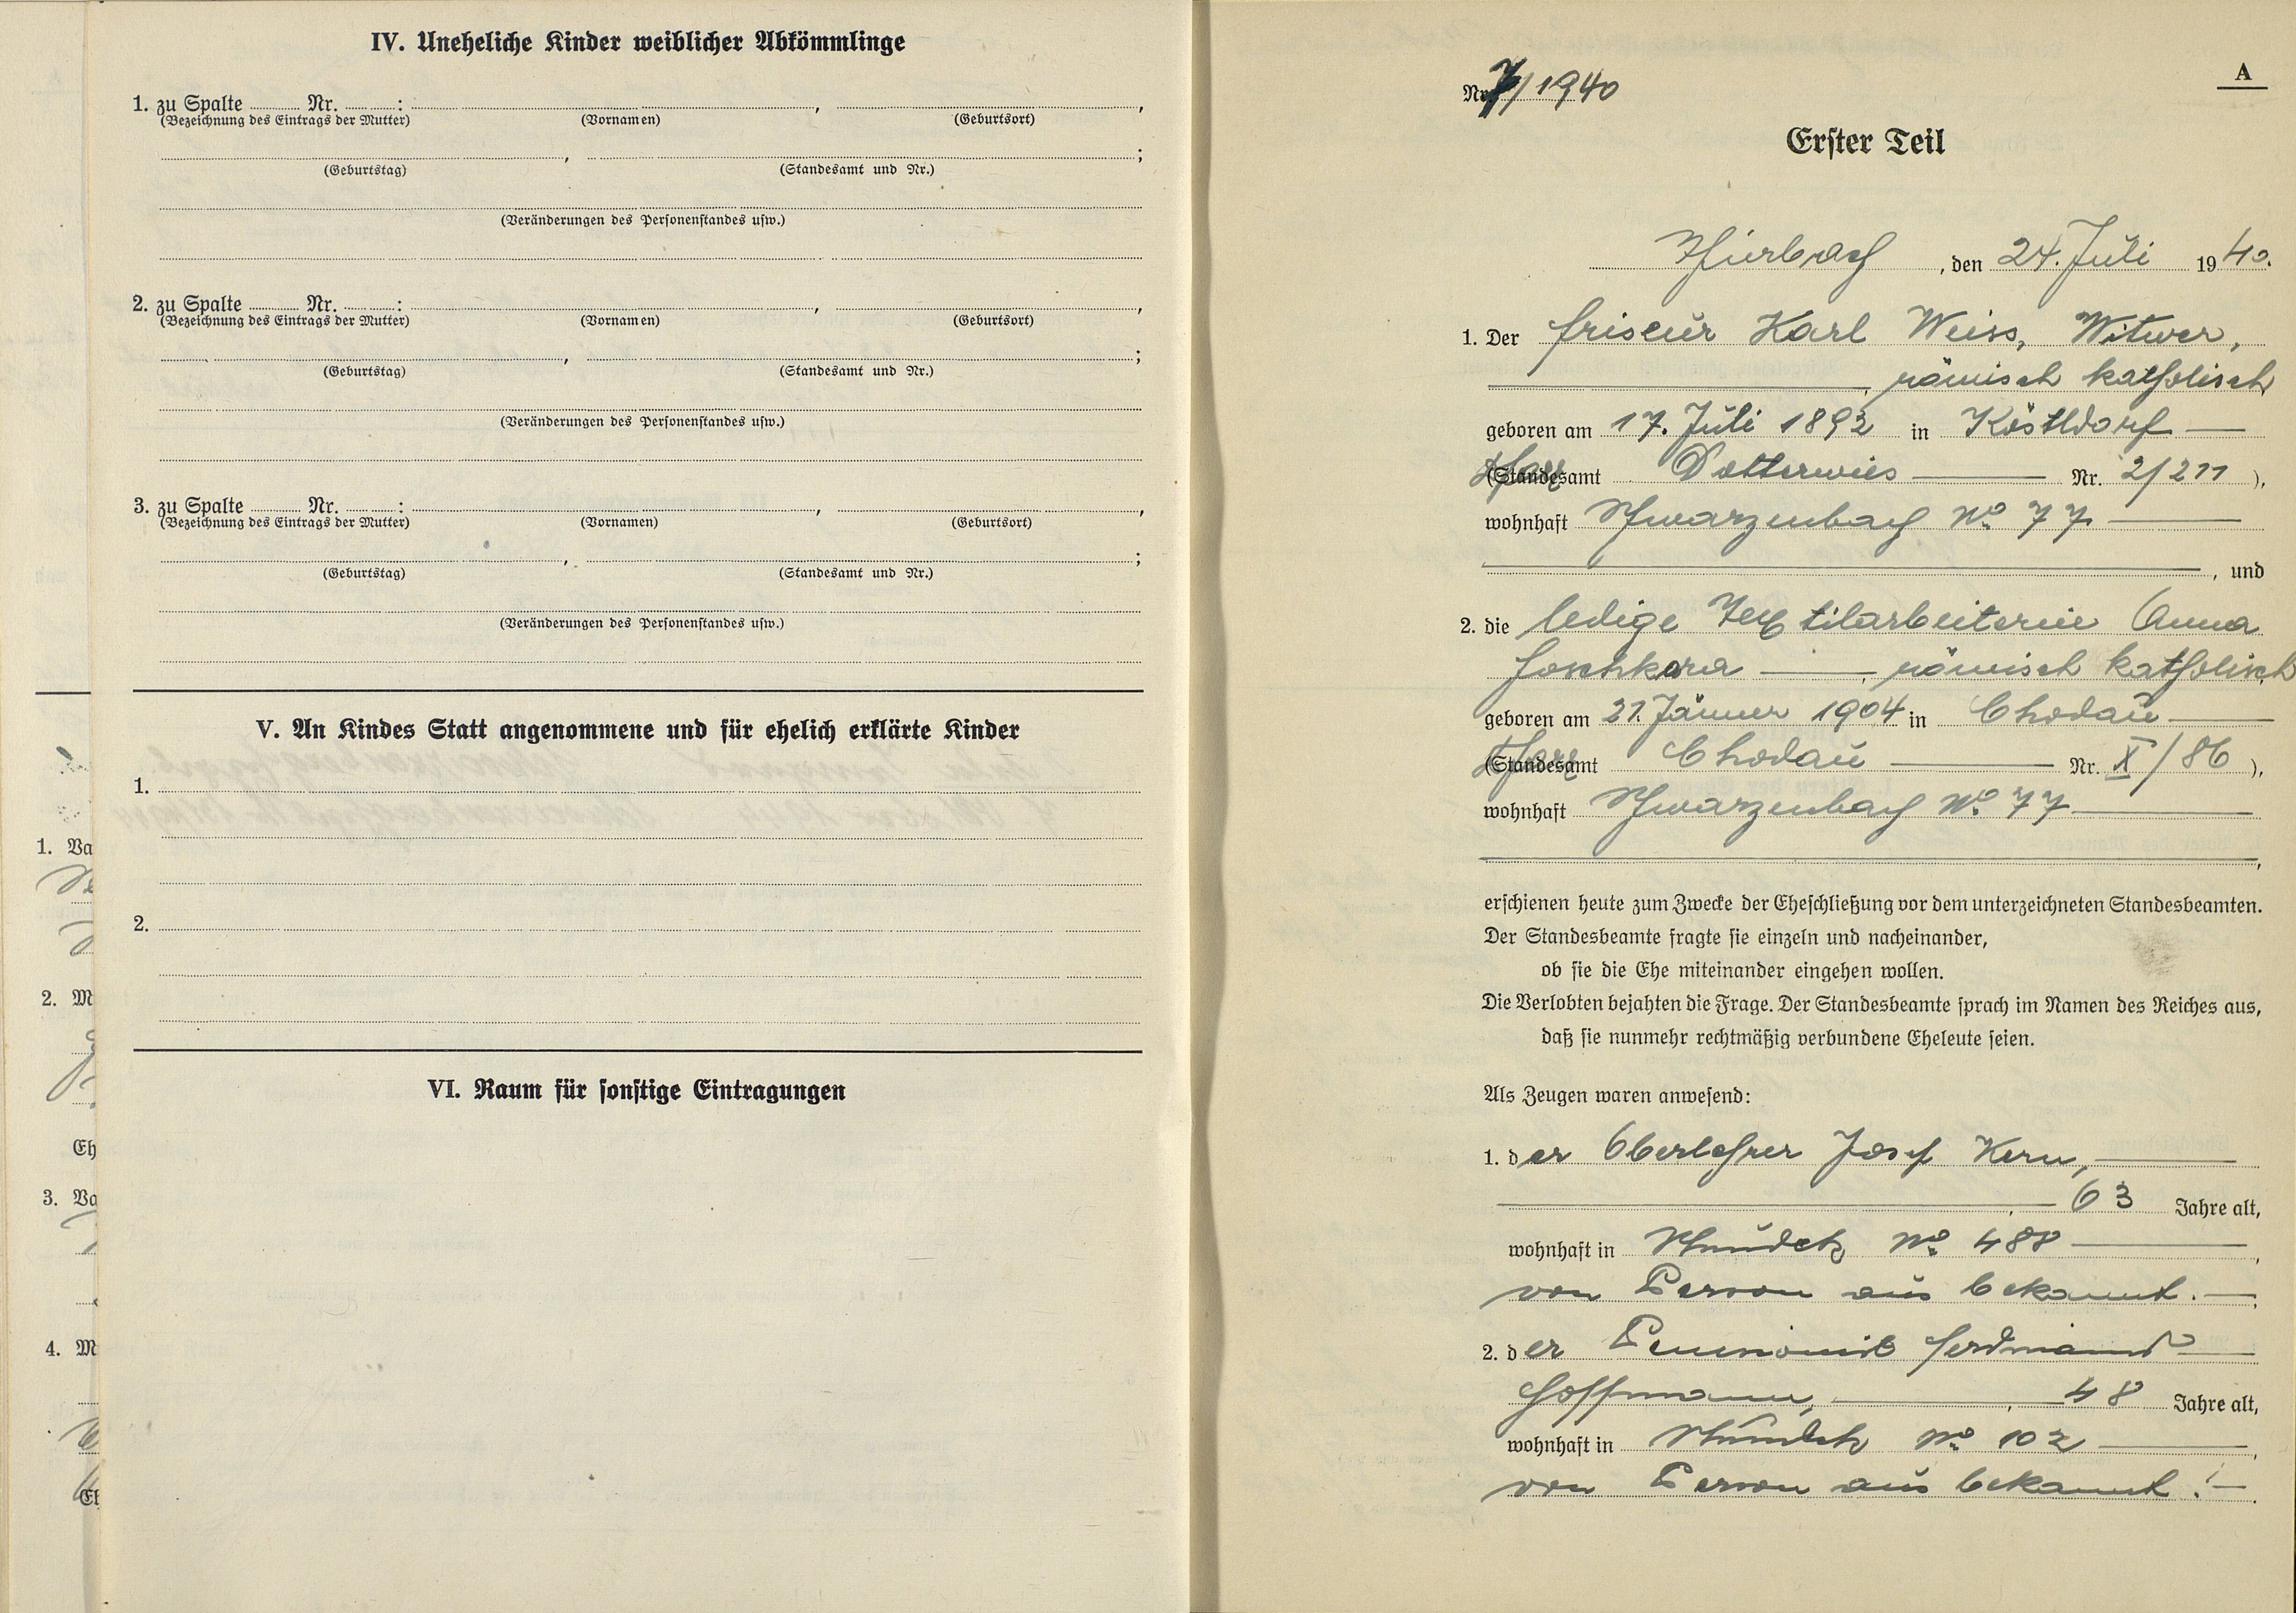 IV. Uneheliche Kinder weiblicher Abkömmlinge
1. zu Spalte ........ Nr. ........:
(Bezeichnung des Eintrags der Mutter) (Vornamen) (Geburtsort)
(Geburtstag) (Standesamt und Nr.)
(Veränderungen des Personenstandes usw.)
2. zu Spalte ........ Nr. ........:
(Bezeichnung des Eintrags der Mutter) (Vornamen) (Geburtsort)
(Geburtstag) (Standesamt und Nr.)
(Veränderungen des Personenstandes usw.)
3. zu Spalte ........ Nr. ........:
(Bezeichnung des Eintrags der Mutter) (Vornamen) (Geburtsort)
(Geburtstag) (Standesamt und Nr.)
(Veränderungen des Personenstandes usw.)
V. An Kindes Statt angenommene und für ehelich erklärte Kinder
1.
2.
VI. Raum für sonstige Eintragungen
1. Va
2. M
Eh
3. Va
4. M
A
Nr. 7/1940
Erster Teil
, den 24. Juli 1940.
1. Der Friseur Karl Weiss, Witwer,
römisch katholisch
geboren am 17. Juli 1892 in Köstldorf
(Standesamt Dotterwies Nr. 2/211),
wohnhaft Schwarzenbach No 77
, und
2. die ledige Textilarbeiterin Anna
römisch katholisch
geboren am 21. Jänner 1904 in Chodau
(Standesamt Chodau Nr. X/86),
wohnhaft Schwarzenbach No 77
erschienen heute zum Zwecke der Eheschließung vor dem unterzeichneten Standesbeamten.
Der Standesbeamte fragte sie einzeln und nacheinander,
ob sie die Ehe miteinander eingehen wollen.
Die Verlobten bejahten die Frage. Der Standesbeamte sprach im Namen des Reiches aus,
daß sie nunmehr rechtmäßig verbundene Eheleute seien.
Als Zeugen waren anwesend:
1. der Oberlehrer Josef Kern,
63 Jahre alt,
wohnhaft in No 488
von Person aus bekannt.
2. der Pensionist Ferdinand
Hoffmann, 48 Jahre alt,
wohnhaft in No 102
von Person aus bekannt.